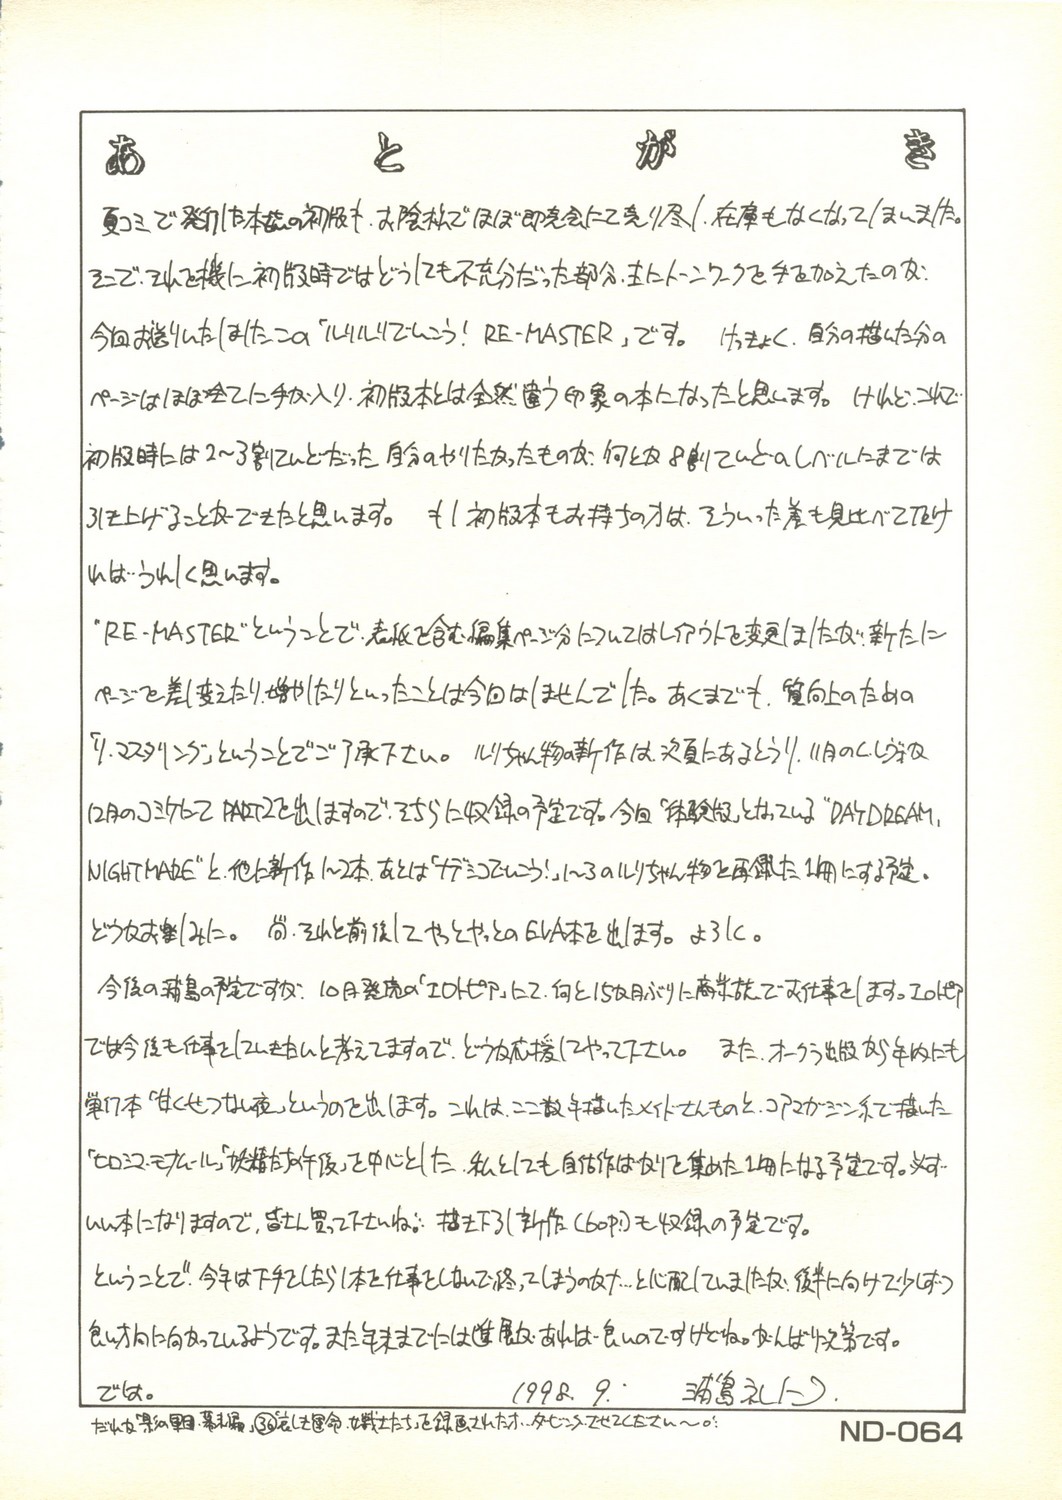 あとがき
夏コミで発行した本誌の初版も、お陰様でほぼ即売会にて売り尽し、在庫もなくなってしまいました。
そこで、それを機に、初版時ではどうしても不充分だった部分、主にトーンワークを手を加えたのが、
今回お送りいたしましたこの「ルリルリでいこう! RE-MASTER」です。 けっきょく、自分の描いた分の
ページはほぼ全てに手が入り、初版本とは全然違う印象の本になったと思います。 けれど、これで
初版時には2〜3割ていどだった、自分のやりたかったものが、何とか8割ていどのレベルにまでは
引き上げることができたと思います。 もし初版本もお持ちの方は、そういった差も見比べて頂け
ればうれしく思います。
"RE-MASTER"ということで、表紙を含む編集ページ分についてはレイアウトを変更しましたが、新たに
ページを差し変えたり、増やしたりといったことは今回はしませんでした。あくまでも、質向上のための
「リ・マスタリング」ということでご了承下さい。 ルリちゃん物の新作は、次頁にあるとうり、11月のC.レヴォか
12月のコミケにて PART2を出しますので、そちらに収録の予定です。今回「体験版」となっている"DAYDREAM,
NIGHTMARE"と、他に新作1〜2本、あとは「ナデシコでいこう!」1〜3のルリちゃん物を再録した1冊にする予定。
どうかお楽しみに。 尚、それと前後してやっとやっとのEVA本を出します。よろしく。
今後の浦島の予定ですが、10月発売の「エロトピア」にて、何と15か月ぶりに商業誌でお仕事をします。エロトピア
では今後も仕事をしていきたいと考えてますので、どうか応援してやって下さい。 また、オークラ出版から年内にも
単行本「甘くせつない夜」というのを出します。これは、ここ数年描いたメイドさんものと、コアマガジン系で描いた
「ヒロシマ・モナムール」「妖精たちの午後」を中心とした、私としても自信作ばかりを集めた1冊になる予定です。必ず
いい本になりますので、皆さん買って下さいね。 描き下ろし新作(60p!)も収録の予定です。
ということで、今年は下手をしたら1本も仕事をしないで終ってしまうのか?…と心配していましたが、後半に向けて少しずつ
良い方向に向かっているようです。また年末までには進展があれば良いのですけどね。がんばり次第です。
では。 1998. 9. 浦島礼仁
だれか「影の軍団・幕末編」㉖「哀しき運命、女戦士たち」を録画された方、ダビングさせてくださ〜い。
ND-064